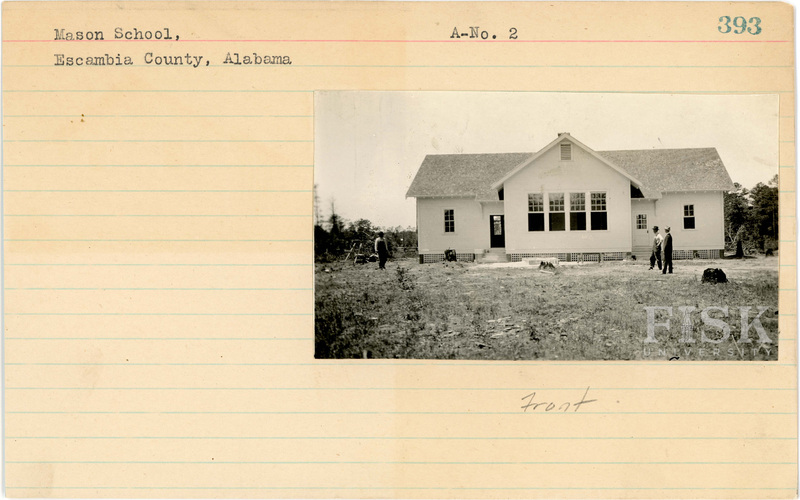 Mason School,
A-No. 2
393
Escambia County, Alabama
FISK
UNIVERSITY
Front.